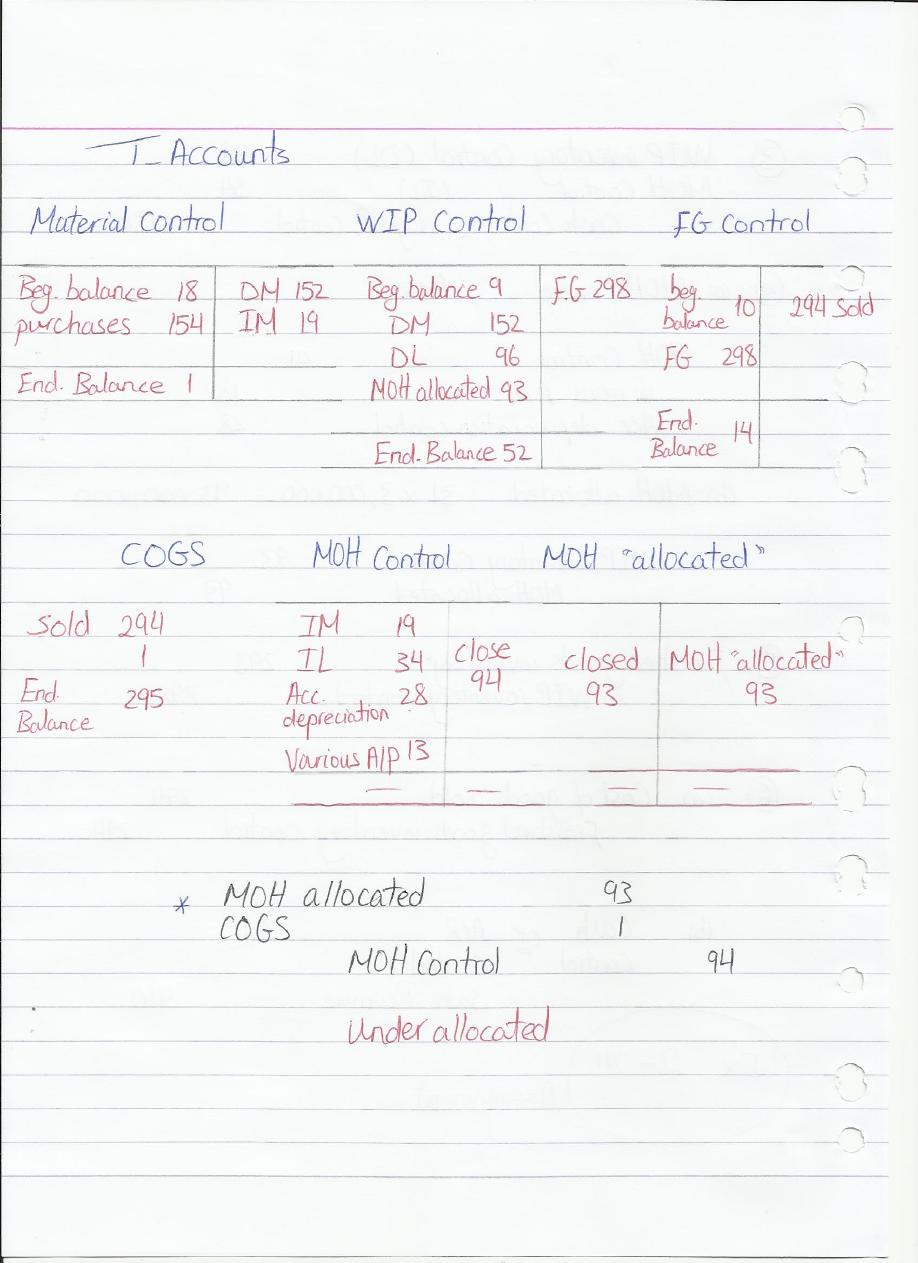 T_ Accounts
Material Control
WIP Control
FG Control
Beg. balance 18
purchases 154
End. Balance 1
DM 152
IM 19
Beg. balance 9
DM 152
DL 96
MOH allocated 93
End. Balance 52
FG 298
beg.
balance 10
FG 298
End.
Balance 14
294 Sold
COGS
MOH Control
MOH "allocated"
Sold 294
1
End.
Balance 295
IM 19
IL 34
Acc. 28
depreciation
Various A/P 13
close
94
closed
93
MOH "allocated"
93
* MOH allocated 93
COGS 1
MOH Control 94
Under allocated